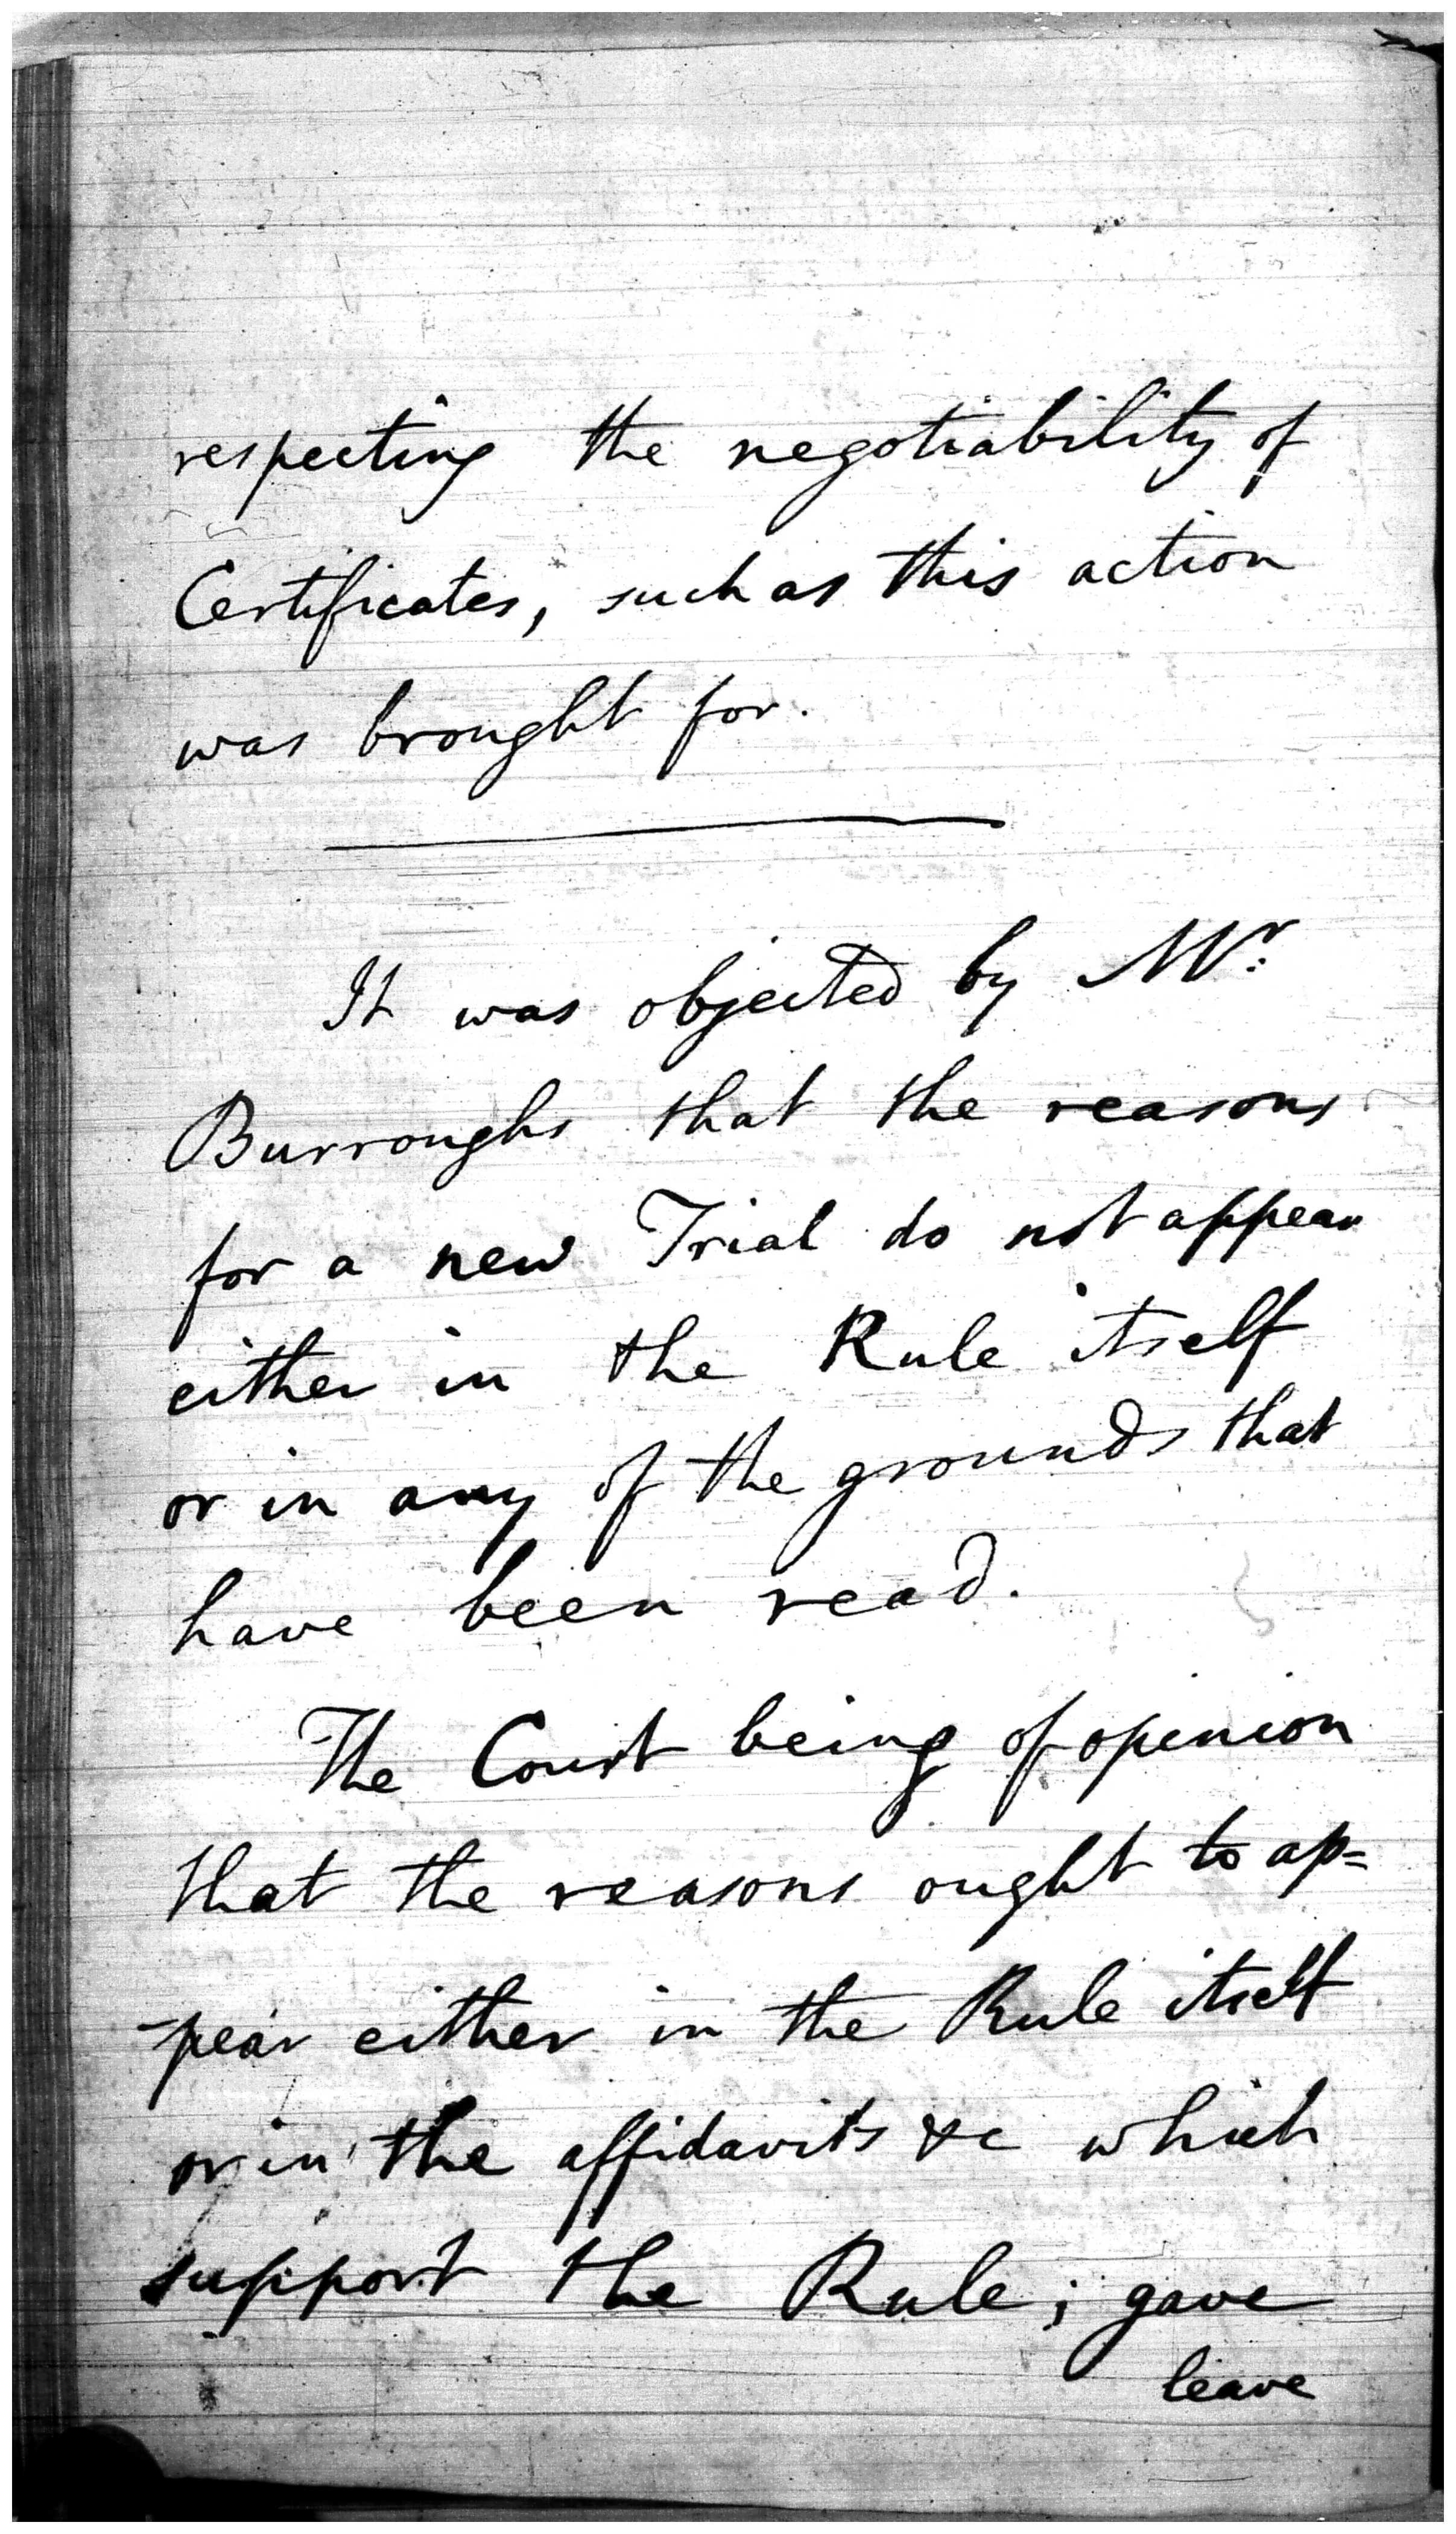 respecting the negotiability of
Certificates, such as this action
was brought for.
It was objected by Mr:
Burroughs that the reasons
for a new Trial do not appear
either in the Rule itself
or in any of the grounds that
have been read.
The Court being of opinion
that the reasons ought to ap=
-pear either in the Rule itself
or in the affidavits &c which
support the Rule; gave
leave